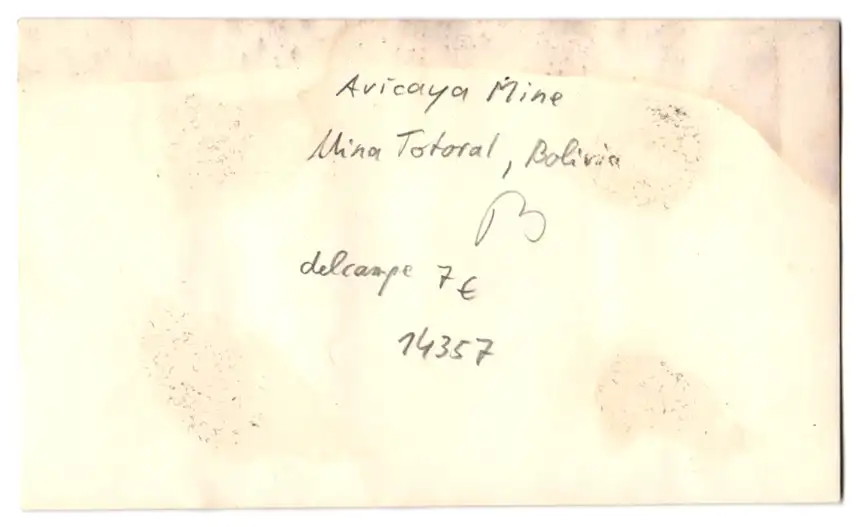 Avicaya Mine
Mina Totoral, Bolivia
B
delcampe 7€
14357